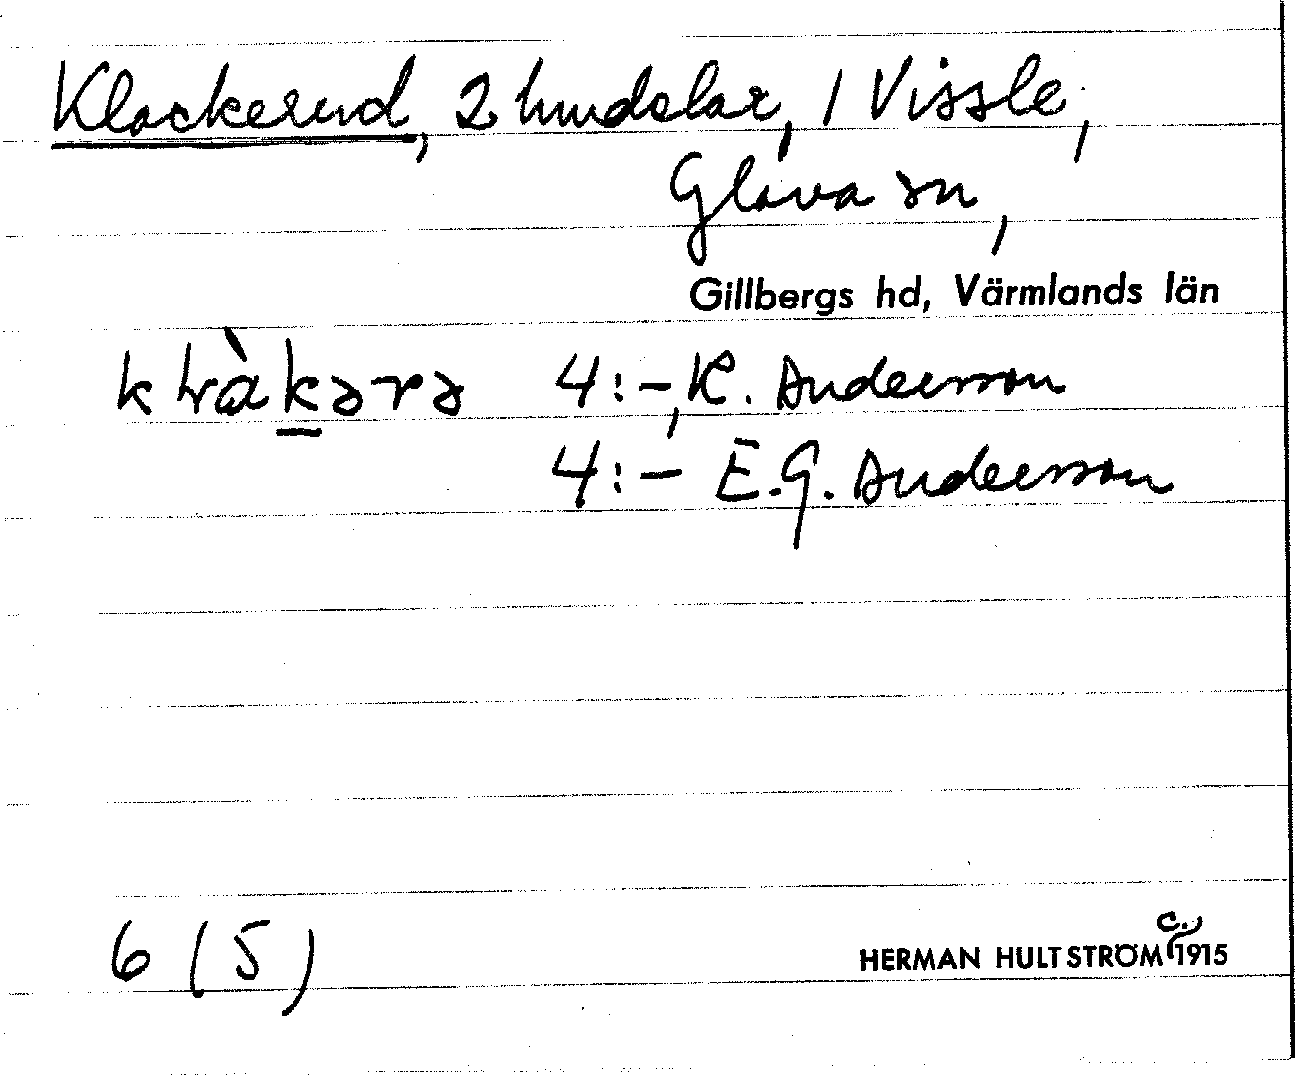 Klockerud, 2 hmdelar, 1 Vissle,
Glava sn,
Gillbergs hd, Värmlands län
4:-, K. Andersson
4:- E.G. Andersson
6 (5)
HERMAN HULTSTRÖM c. 1915